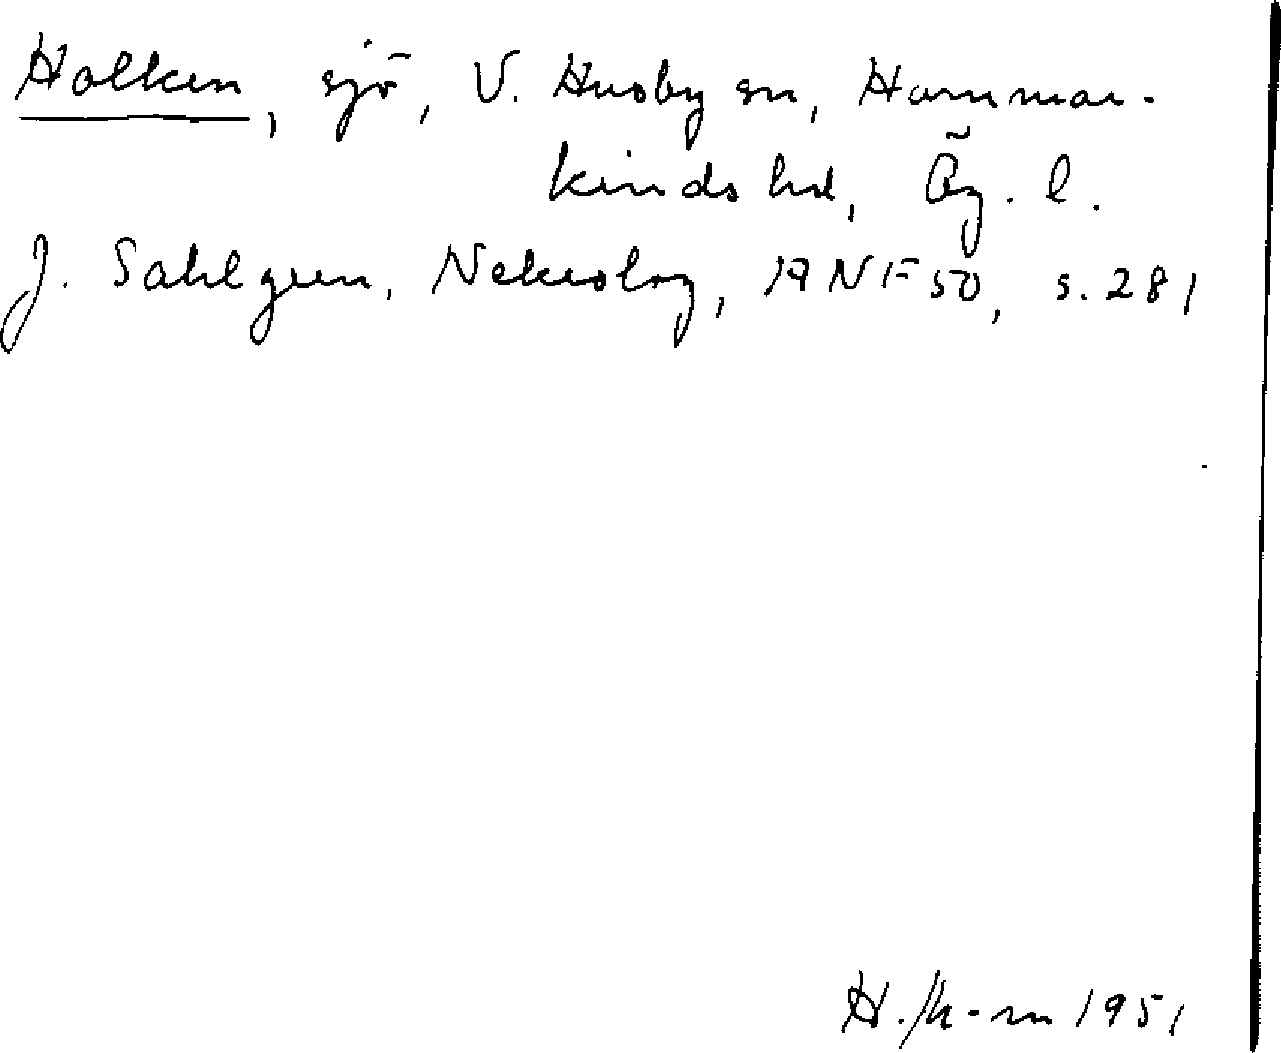 Holken, sjö, V. Husby sn, Hammar-
kinds hd, Ög. l.
J. Sahlgren, Nekrolog, ANF 50, s. 281
1951